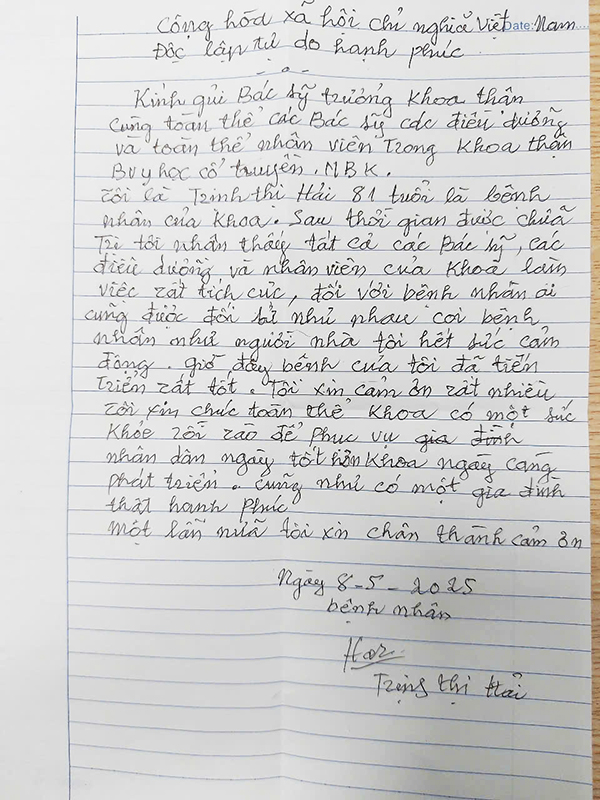 Cộng hòa xã hội chỉ nghiã Việt Date: Nam
Độc lập tự do hạnh phúc
Kính gửi Bác sỹ trưởng Khoa thận
cùng toàn thể các Bác sỹ các điều dưỡng
và toàn thể nhân viên Trong Khoa thận
BV y học cổ truyền. MBK.
Tôi là Trịnh thị Hải 81 tuổi là bệnh
nhân của Khoa. Sau thời gian được chữa
Trị tôi nhận thấy tất cả các Bác sỹ, các
điều dưỡng và nhân viên của Khoa làm
việc rất tích cực, đối với bệnh nhân ai
cũng được đối sử như nhau coi bệnh
nhân như người nhà tôi hết sức cảm
động. giờ đây bệnh của tôi đã tiến
triển rất tốt. Tôi xin cảm ơn rất nhiều
Tôi xin chúc toàn thể Khoa có một sức
Khỏe rồi rào để phục vụ gia đình
nhân dân ngày tốt hơn Khoa ngày càng
phát triển. cũng như có một gia đình
thật hạnh phúc
một lần nữa tôi xin chân thành cảm ơn
Ngày 8-5-2025
bệnh nhân
Trịnh thị Hải